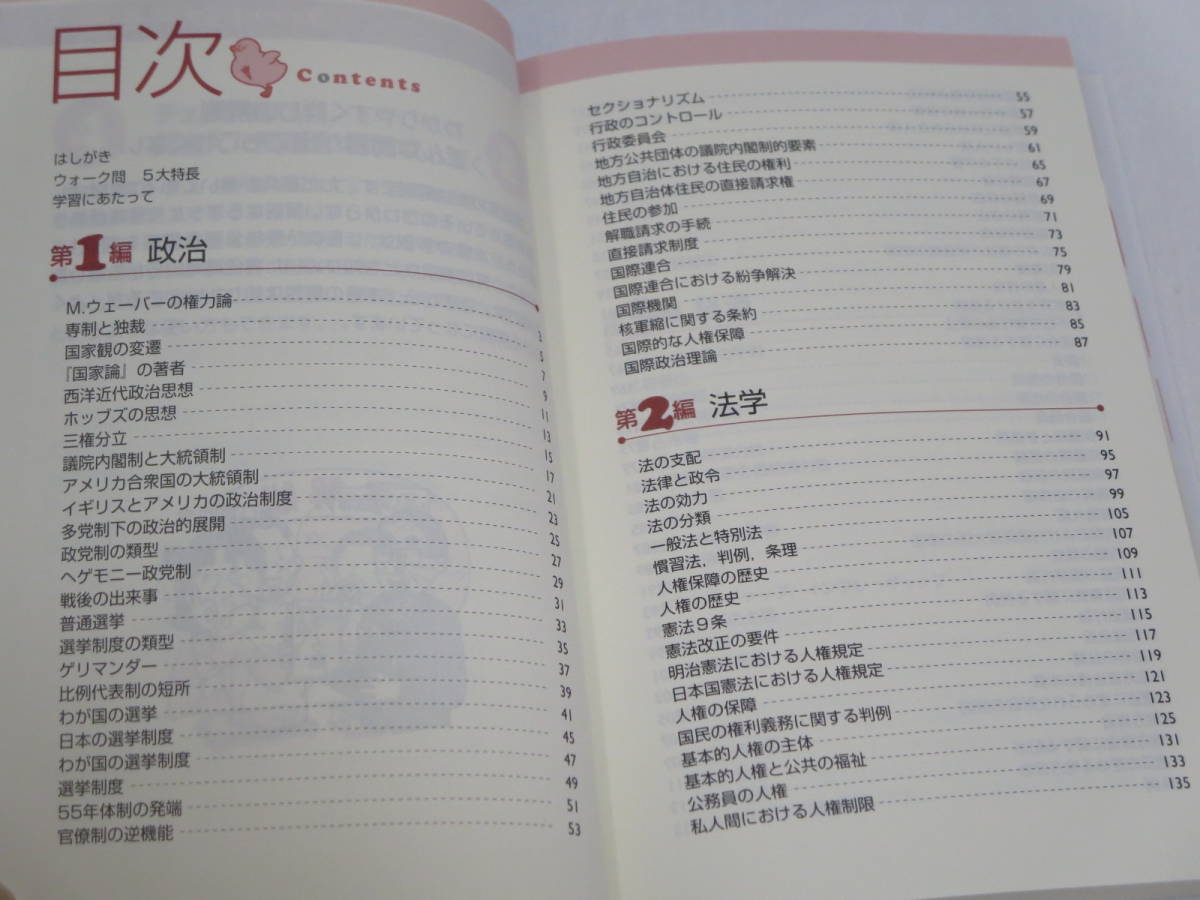 目次 Contents
はしがき
ウォーク問　5大特長
学習にあたって
第1編 政治
M.ウェーバーの権力論 3
専制と独裁 5
国家観の変遷 7
『国家論』の著者 9
西洋近代政治思想 11
ホッブズの思想 13
三権分立 15
議院内閣制と大統領制 17
アメリカ合衆国の大統領制 21
イギリスとアメリカの政治制度 23
多党制下の政治的展開 25
政党制の類型 27
ヘゲモニー政党制 29
戦後の出来事 31
普通選挙 33
選挙制度の類型 35
ゲリマンダー 37
比例代表制の短所 39
わが国の選挙 41
日本の選挙制度 45
わが国の選挙制度 47
選挙制度 49
55年体制の発端 51
官僚制の逆機能 53
セクショナリズム 55
行政のコントロール 57
行政委員会 59
地方公共団体の議院内閣制的要素 61
地方自治における住民の権利 65
地方自治体住民の直接請求権 67
住民の参加 69
解職請求の手続 71
直接請求制度 73
国際連合 75
国際連合における紛争解決 79
国際機関 81
核軍縮に関する条約 83
国際的な人権保障 85
国際政治理論 87
第2編 法学
法の支配 91
法律と政令 95
法の効力 97
法の分類 99
一般法と特別法 105
慣習法，判例，条理 107
人権保障の歴史 109
人権の歴史 111
憲法9条 113
憲法改正の要件 115
明治憲法における人権規定 117
日本国憲法における人権規定 119
人権の保障 121
国民の権利義務に関する判例 123
基本的人権の主体 125
基本的人権と公共の福祉 131
公務員の人権 133
私人間における人権制限 135